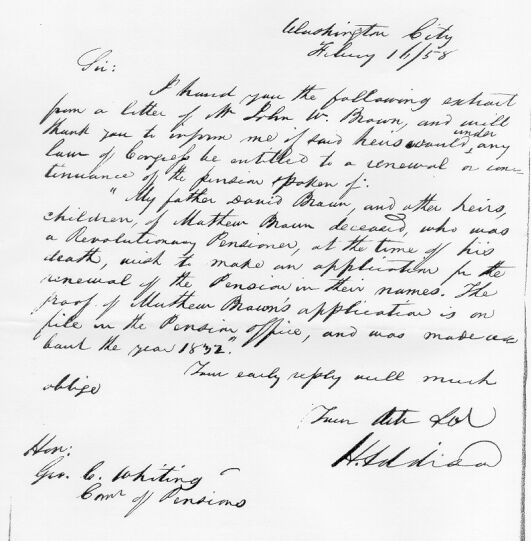 Washington City
Feby 16/58
Sir:
I hand you the following extract
from a letter of Mr John W. Brown, and will
thank you to inform me if said heirs would under any
law of Congress be entitled to a renewal or con-
tinuance of the pension spoken of.
"My father David Brown, and other heirs,
children, of Mathew Brown deceased, who was
a Revolutionary Pensioner, at the time of his
death, wish to make an application for the
renewal of the Pension in their names. The
proof of Mathew Brown's application is on
file in the Pension office, and was made a-
bout the year 1832."
Your early reply will much
oblige
Your Obt
Hon:
Geo. C. Whiting
Comr of Pensions